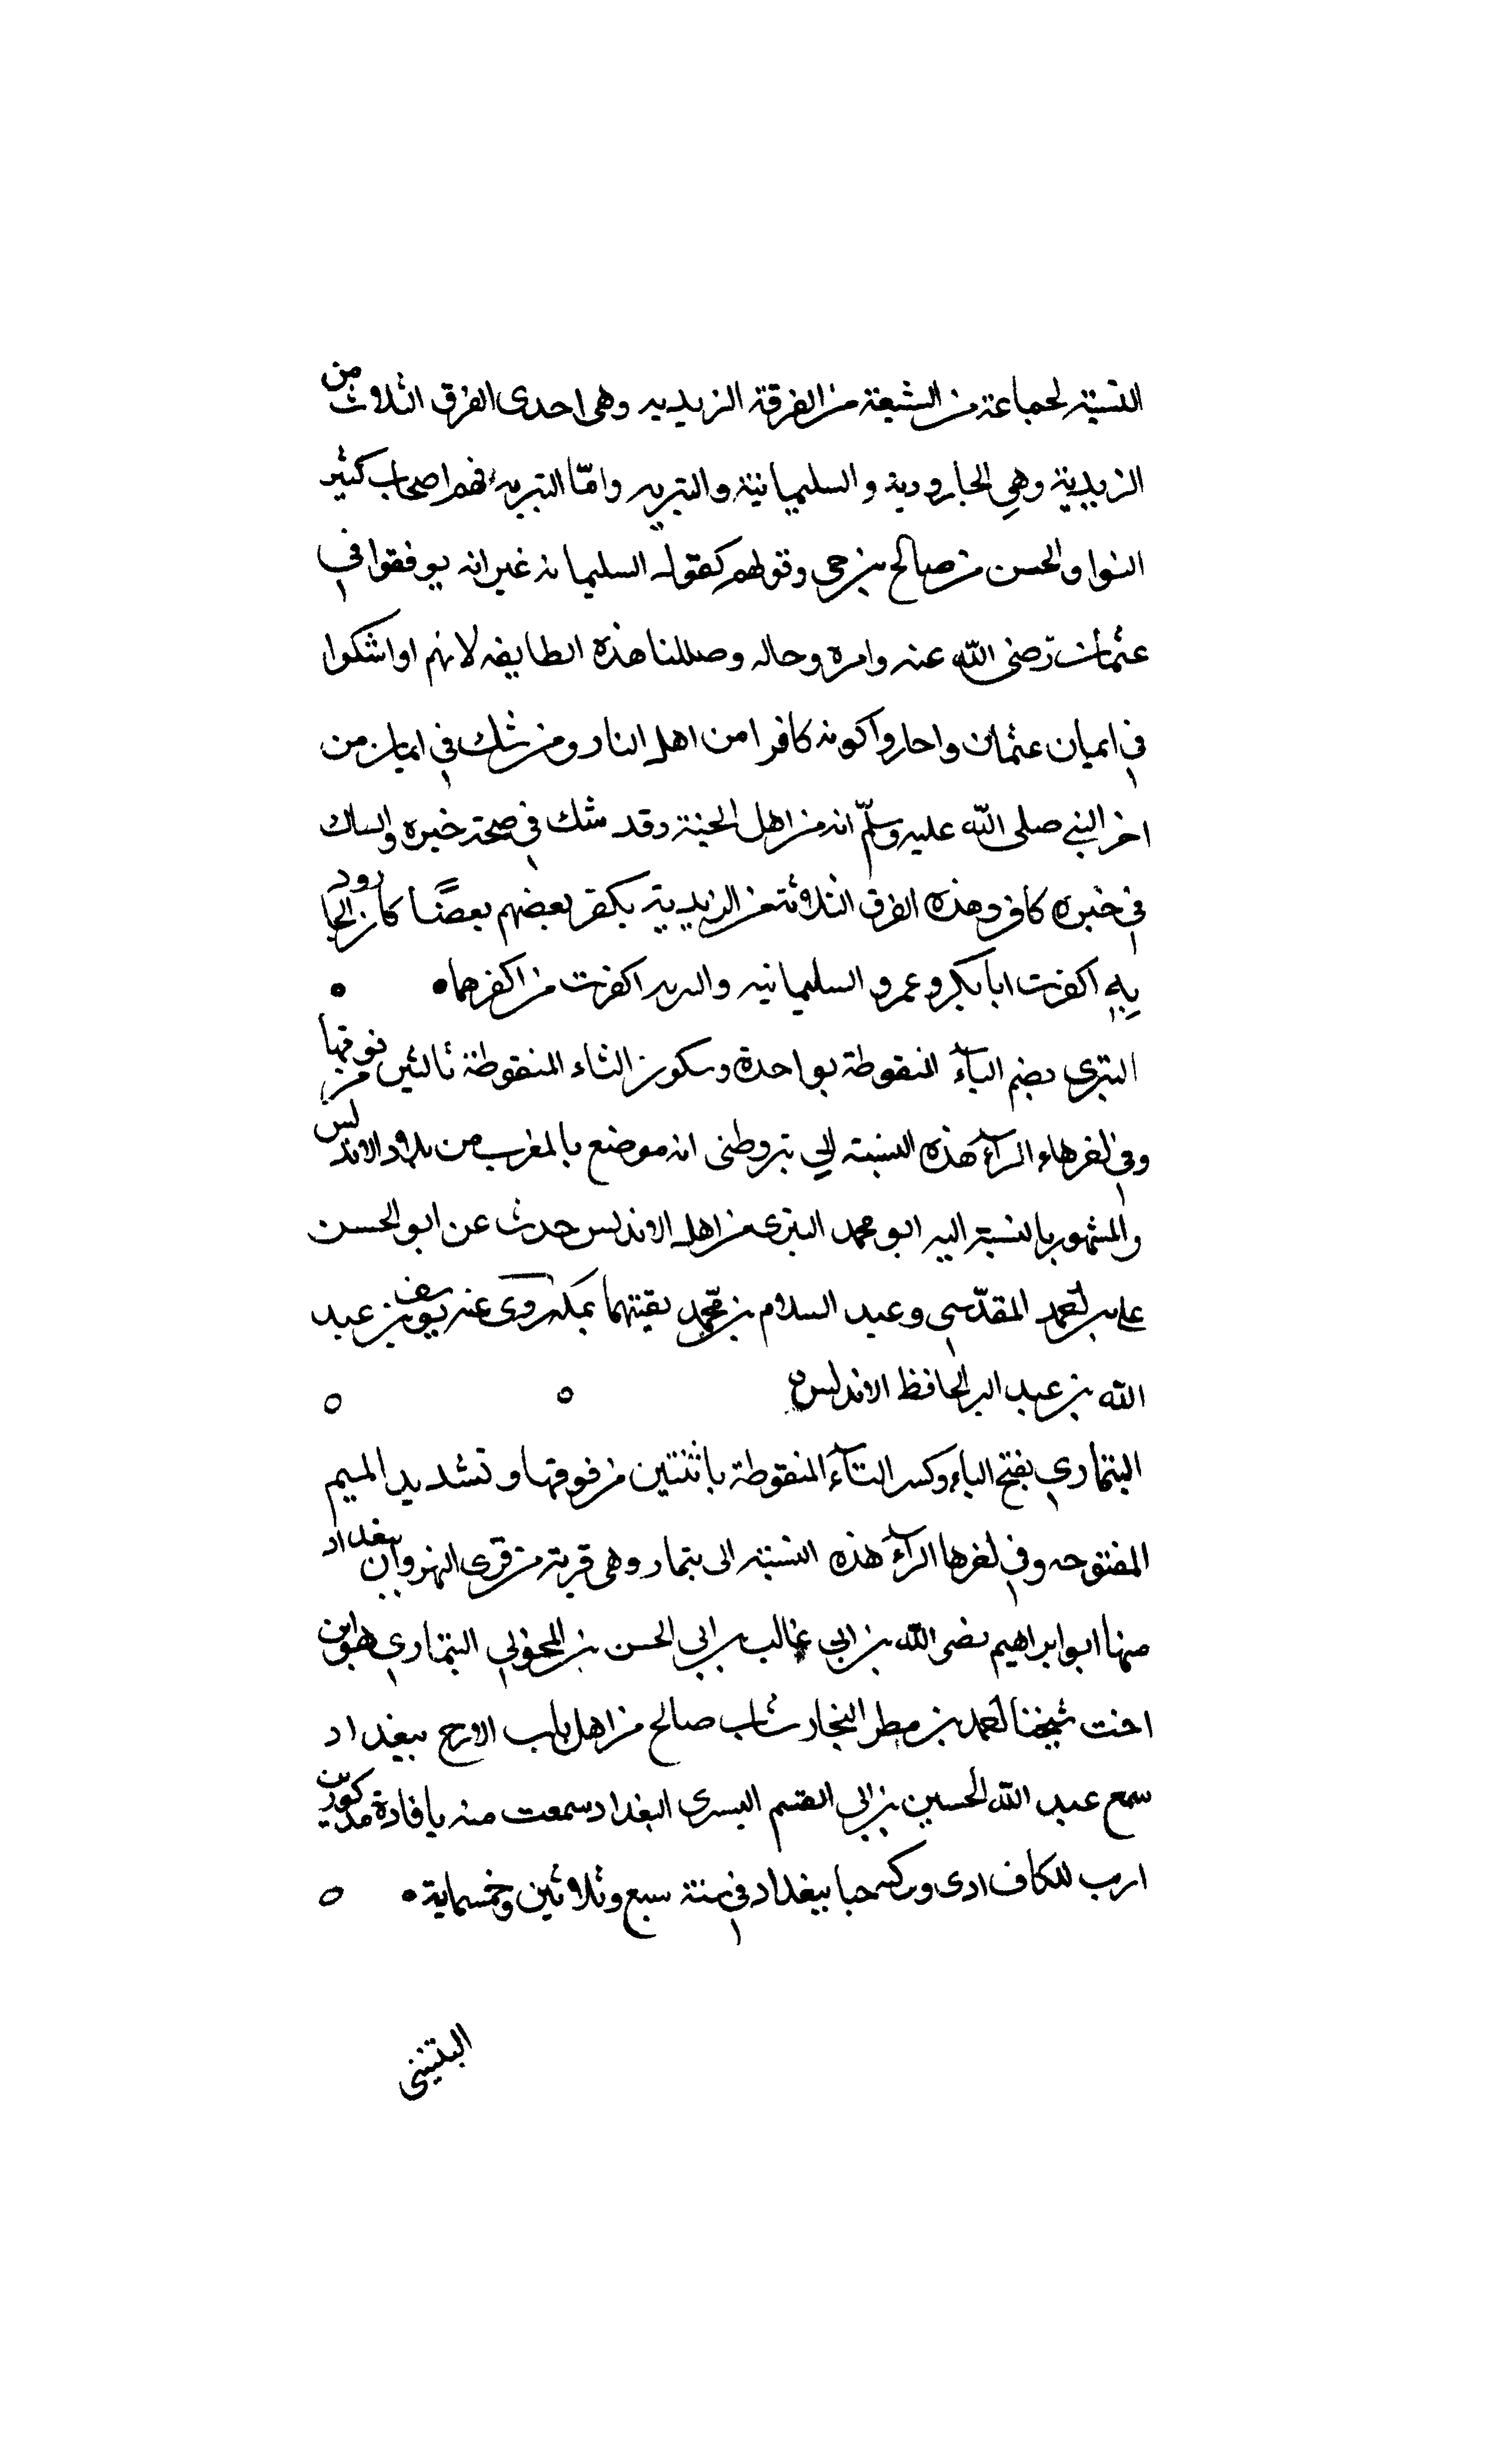 النسبة لجماعة من الشيعة من الفرقة الزيديه وهى احدى الفرق الثلاث من
الزيدية وهي الجارودية والسليمانية والبتريه وامّا البتريه فهم اصحاب كثير
النوا والحسن من صالح بن حى وقولهم كقول السليمانه غير انه يوفقوا في
عثمان رضى الله عنه وامره وحاله وصللنا هذه الطايفه لانهم اواشكوا
في ايمان عثمان واحاروا كونه كافرا من اهل النار ومن شك في ايمان من
اخر النبي صلى الله عليه وسلّم انه من اهل الجنة وقد شك في صحة خبره والساك
في خبره كافر وهذه الفرق الثلاثة من الزيدية يكفر بعضهم بعضًا كان الجارود
يه اكفرت ابا بكر وعمر والسليمانيه والبريه اكفرت من اكفرهما
البترى بضم الباء المنقوطة بواحدة وسكون التاء المنقوطة ثالثين من فوقها
وفي اخرهاء الرآء هذه النسبة الي بتر وظنى انه موضع بالمغرب من بلاد الاندلس
والمشهور بالنسبة اليه ابو محمد البترى من اهل الاندلس حدث عن ابو الحسن
على بن احمد المقدّسي وعبد السلام بن محمد بقيتهما بمكه روى عنه يوسف بن عبد
الله بن عبد البر الحافظ الاندلس
البتماري بفتح الباء وكسر التآء المنقوطة باثنتين من فوقها وتشديد الميم
المفتوحه وفي اخرها الرآء هذه النسبة الى بتمار وهى قرية من قرى النهروان ببغداد
منها ابو ابراهيم نضر الله بن ابي غالب بن ابي الحسن بن البتماري هو ابن
اخت شيخنا احمد بن مطر النجار شاب صالح من اهل باب الازج ببغداد
سمع عبد الله الحسين بن ابي القسم البسرى البغداد سمعت منه يافادة
ببغداد في سنة سبع وثلاثين وخمسماية
البتينى